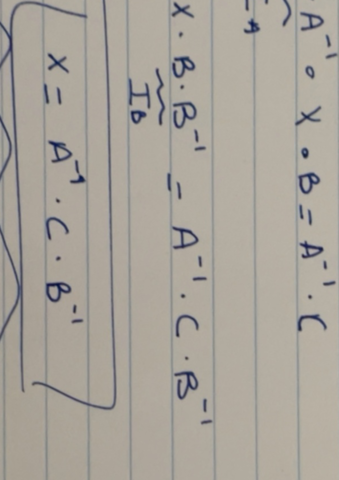 A⁻¹ · X · B = A⁻¹ · C
X · B · B⁻¹ = A⁻¹ · C · B⁻¹
I_b
X = A⁻¹ · C · B⁻¹